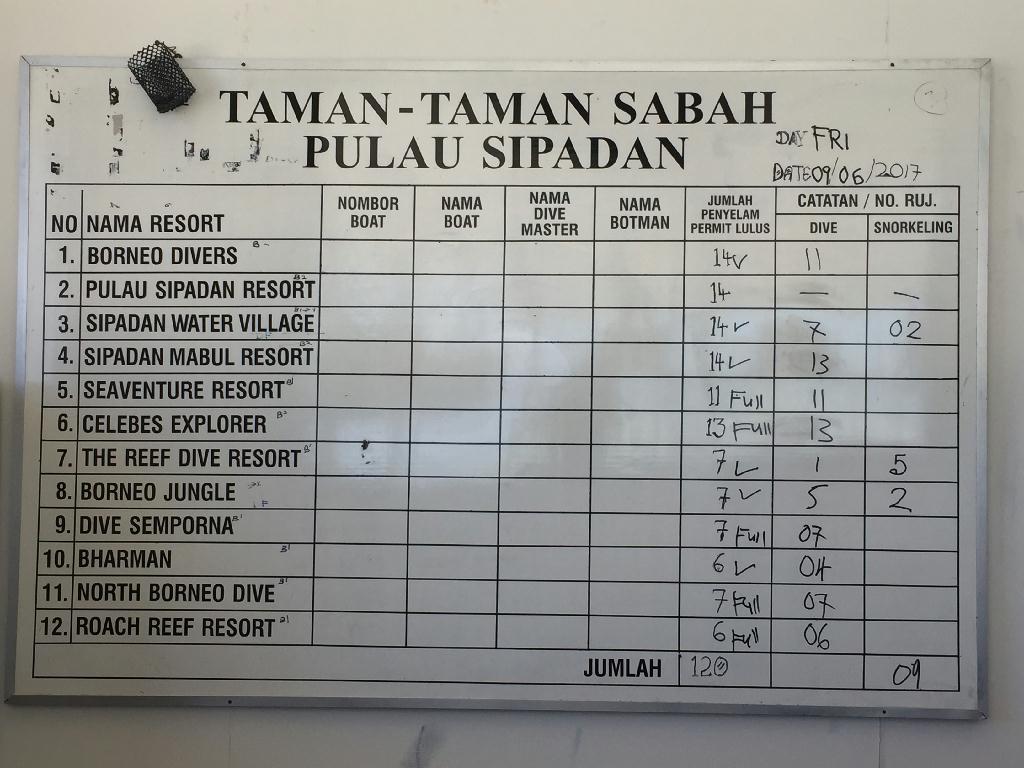 TAMAN-TAMAN SABAH
PULAU SIPADAN
DAY FRI
DATE 09/06/2017
NO NAMA RESORT NOMBOR BOAT NAMA BOAT NAMA DIVE MASTER NAMA BOTMAN JUMLAH PENYELAM PERMIT LULUS CATATAN / NO. RUJ. DIVE SNORKELING
1. BORNEO DIVERS 14✓ 11
2. PULAU SIPADAN RESORT B2 14 — —
3. SIPADAN WATER VILLAGE 14✓ 7 02
4. SIPADAN MABUL RESORT B2 14✓ 13
5. SEAVENTURE RESORT 11 Full 11
6. CELEBES EXPLORER B2 13 Full 13
7. THE REEF DIVE RESORT 7✓ 1 5
8. BORNEO JUNGLE 7✓ 5 2
9. DIVE SEMPORNA B1 7 Full 07
10. BHARMAN B1 6✓ 04
11. NORTH BORNEO DIVE B1 7 Full 07
12. ROACH REEF RESORT 6 Full 06
JUMLAH 120 09